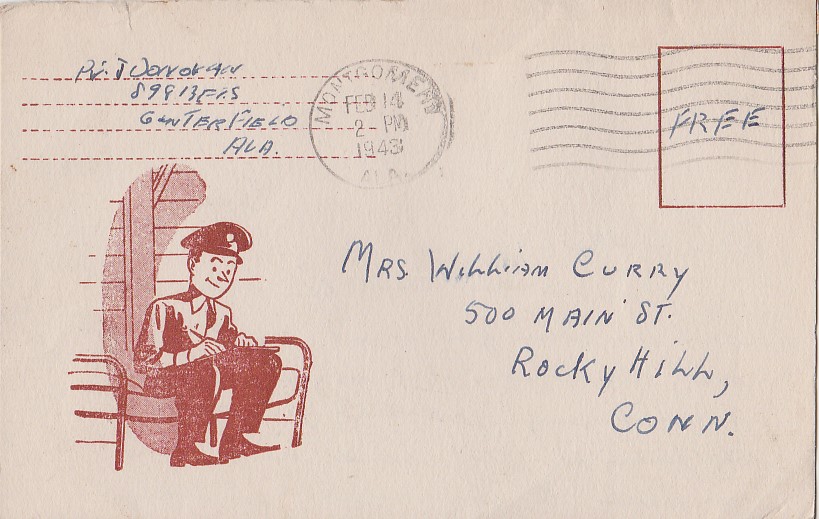 Pvt. J Donovan
GunterField
ALA.
MONTGOMERY
FEB 14
2 - PM
1943
ALA.
FREE
MRS William CURRY
500 MAIN ST.
Rocky Hill,
CONN.